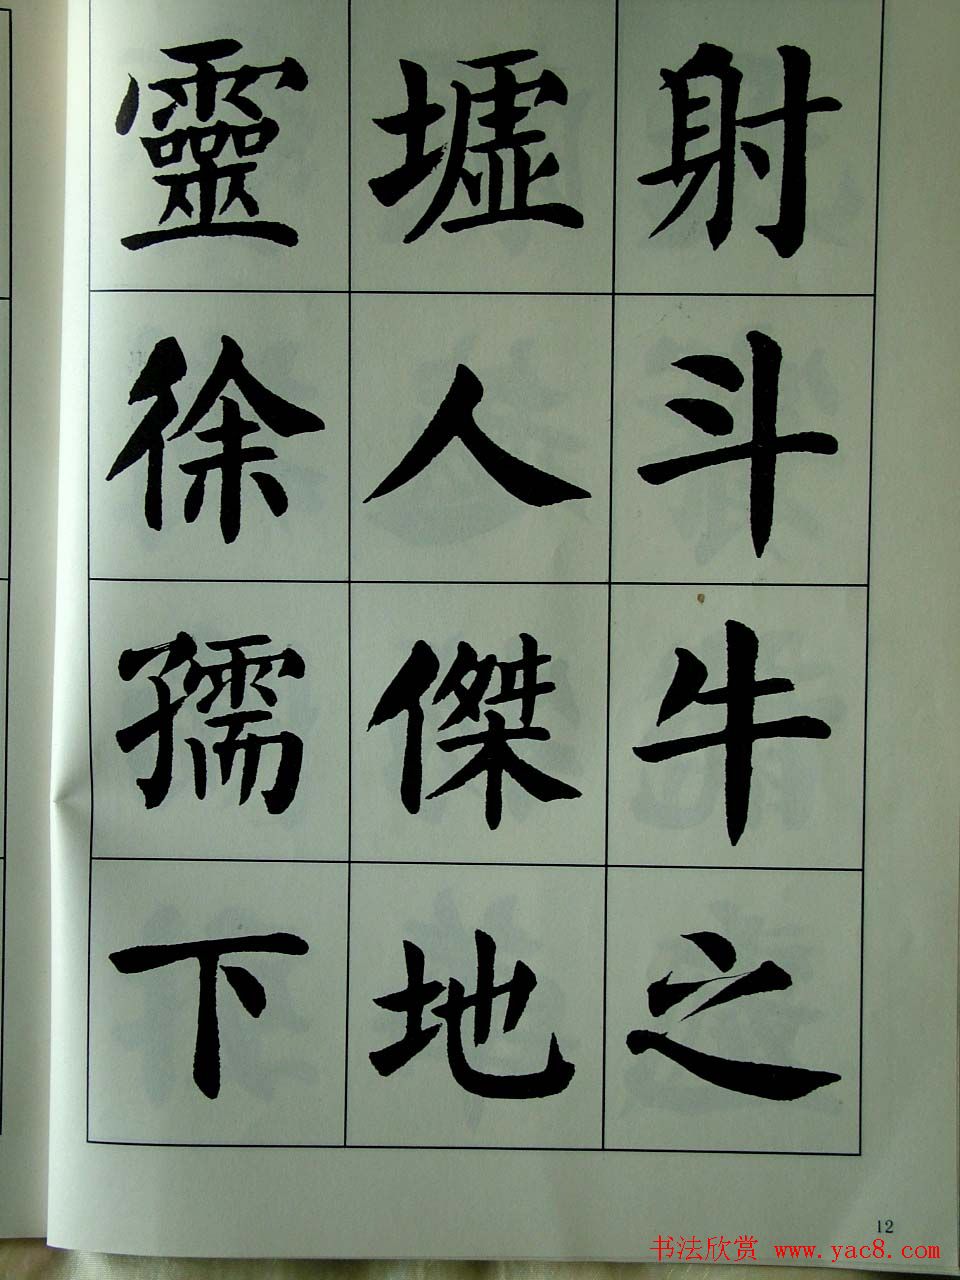 射斗牛之
墟人傑地
靈徐孺下
12
书法欣赏 www.yac8.com